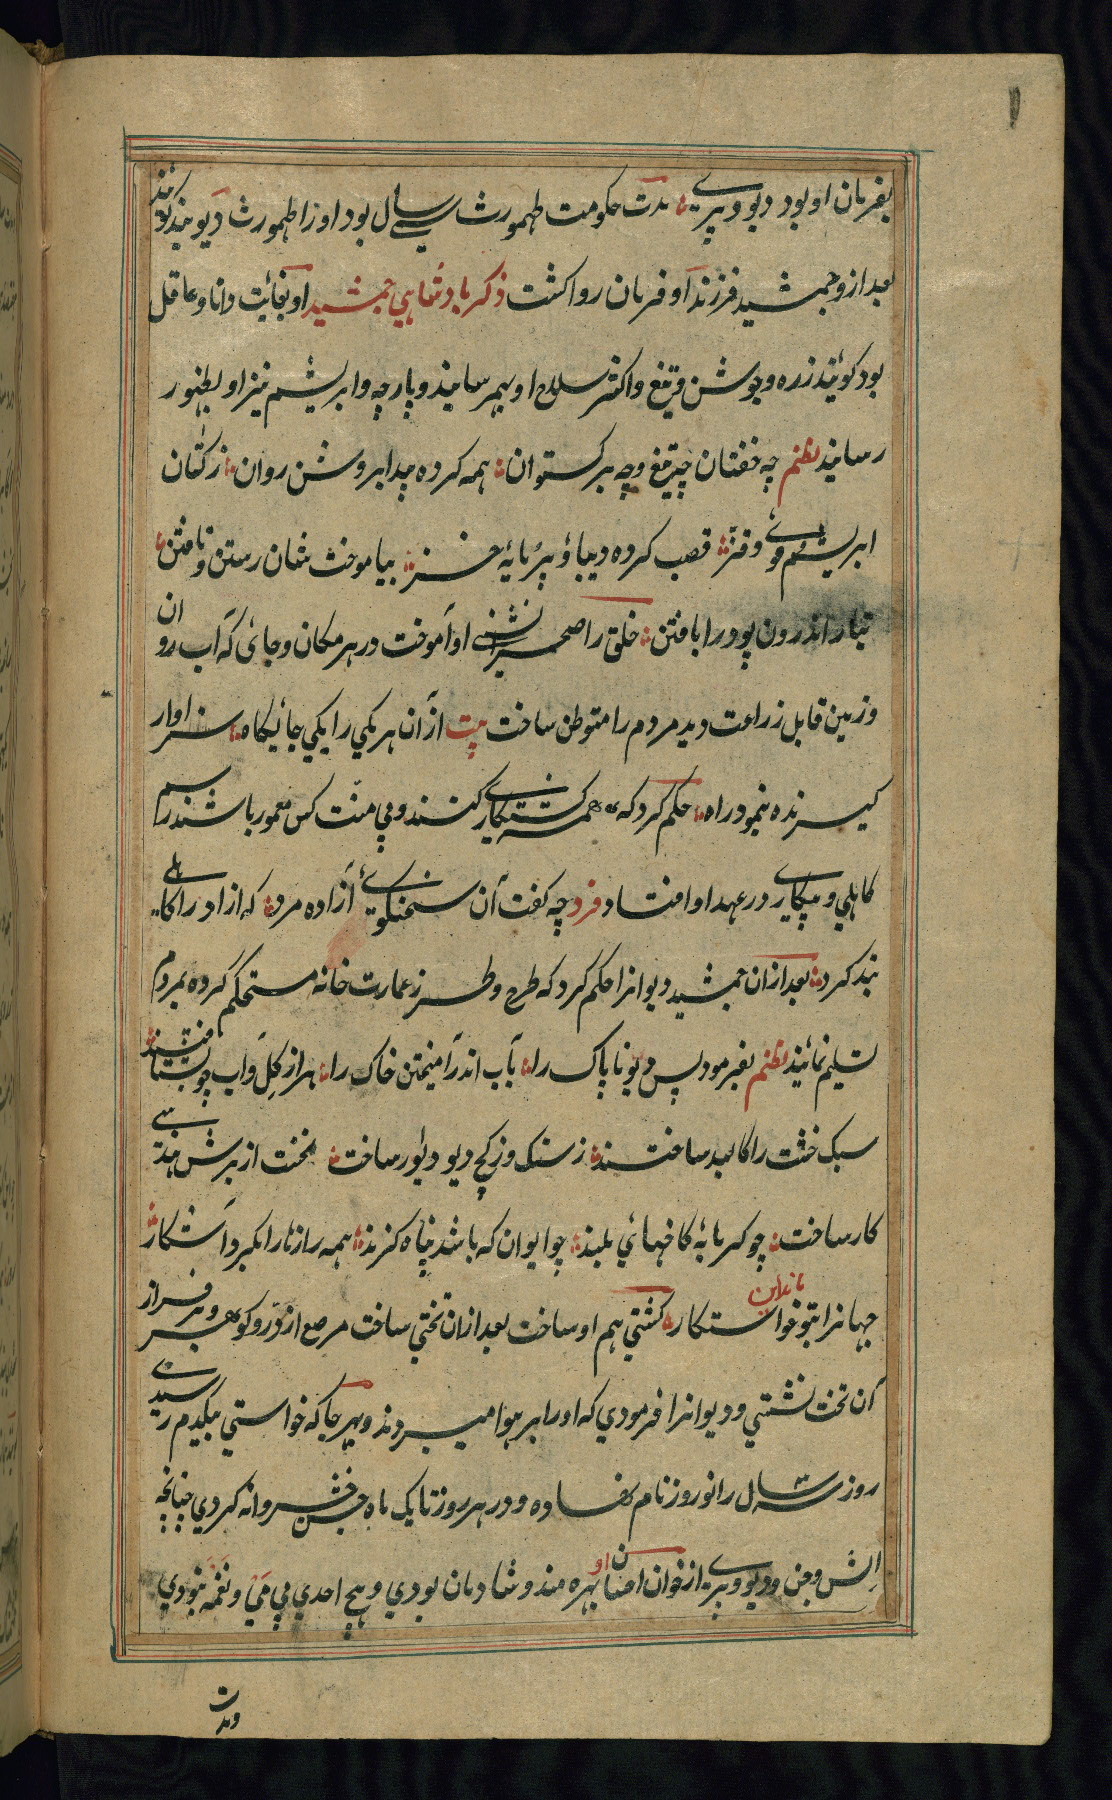 بفرمان او بود دیو و پری مدت حکومت طهمورث سی سال بود او را طهمورث دیوبند گویند
بعد ازو جمشید فرزند او فرمان روا گشت ذکر پادشاهي جمشید او بغائیت دانا و عاقل
بود گویند زره و جوشن و تیغ و اکثر سلاح او بهم رسانید و پارچه و ابریشم نیز او بظهور
رسانید نظم چه خفتان چه تیغ و چه برگستوان همه کرده پیدا بروشن روان ز کتان
ابریشم و موی و قز قصب کرده دیبا و پرمایهٔ خز بیاموخت شان رستن و تافتن
بتار اندرون پود را بافتن خلق را صحرانشینی او آموخت در هر مکان و جائ که آب روان
و زمین قابل زراعت دید مردم را متوطن ساخت بیت از آن هر یکي را یکي جائیگاه سزاوار
گیرنده بنمود راه حکم کرد که همه کشتکاري کنند و بي منت کس معمور باشند رسم
کاهلي و بیکاري در عهد او افتاد فرد چه گفت آن سخنگوي آزاده مرد که ازاد را کاهلي
بند کرد بعد ازان جمشید دیوانرا حکم کرد که طرح و طرز عمارت خانه مستحکم کرده بمردم
تسلیم نمائیند نظم بفرمود پس دیو ناپاک را بآب اندر آمیختن خاک را هر از گل و اب چو بشناختند
سبک خشت را کالبد ساختند ز سنگ و ز گچ دیو دیوار ساخت نخست از برش هندسي
کار ساخت چو گرمابه کاخهائي بلند چو ایوان که باشد پناه گزند همه رازها را بکرد آشکار
جهانرا نبد زو خواستکار کشتي هم او ساخت بعد ازان تختي ساخت مرصع از در و گوهر و بر فراز
آن تخت نشستي و دیوانرا فرمودي که او را بر هوا میبردند و بهر جا که خواستي بیکدم رسیدي
روز سر سال را نوروز نام نهاده و در هر روز تا یک ماه جشن خسروانه کردي چنانچه
انس و جن و دیو و پري از خوان احسان او بهره مند و شادمان بودي و هیچ احدي بي مَي و نغمه نبودي
ومدت